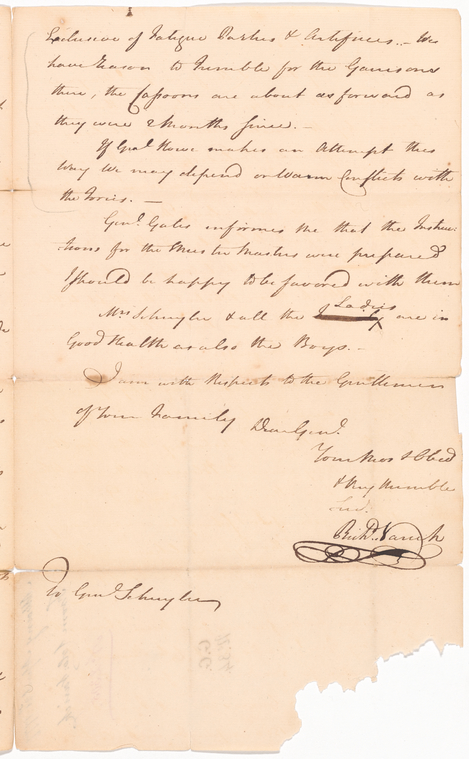 Exclusive of Fatigue Parties & Artificers.— We
have reason to Tremble for the Garrisons
there, the Cassoons are about as forward as
they were 2 Months since.—
If Genl. Howe makes an Attempt this
Way We may depend on Warm Conflicts with
the Tories.—
Genl. Gates informes me that the Instruc-
tions for the Muster Masters were prepared
I should be happy to be favored with them
Mrs Schuyler & all the Ladies are in
Good Health as also the Boys.—
I am with Respects to the Gentlemen
of Your Family Dear Genl.
Your Most Obed
& Very Humble
Serv.
Richd. Varick
To Genl. Schuyler